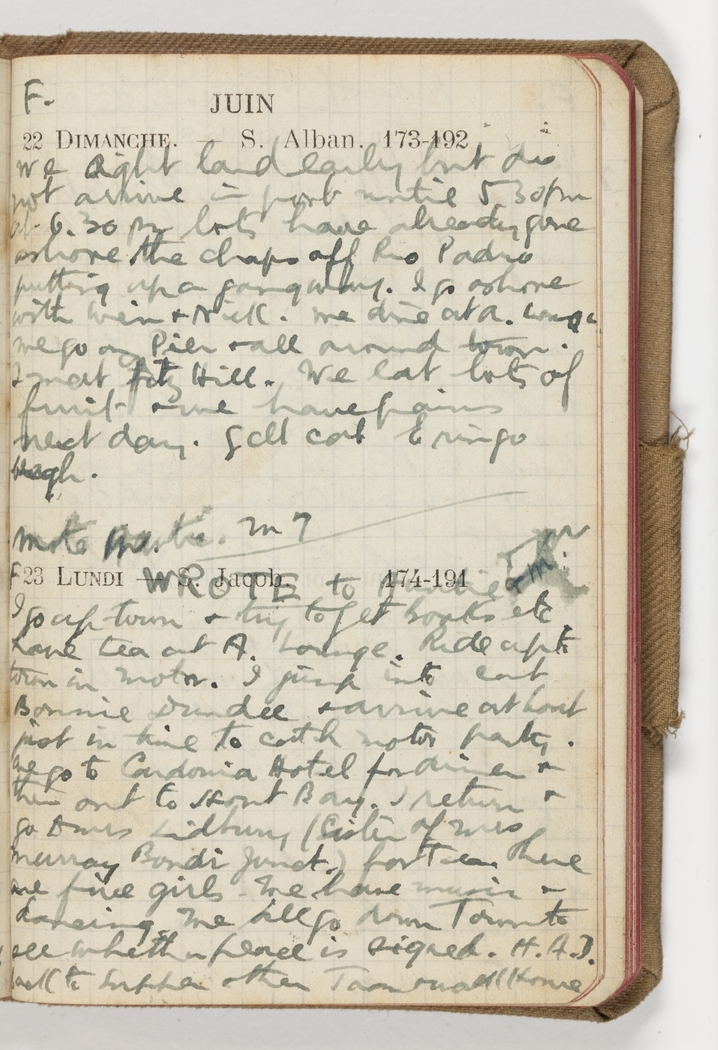 F. JUIN
22 DIMANCHE. — S. Alban. 173-192
we sight land early but do
not arrive in port until 5 30 pm
at 6.30 pm lots have already gone
ashore the chaps off Rio Padro
putting up a gangway. I go ashore
with Weir + Nick. We dine at A. Lounge
we go on Pier + all around town.
I meet Fitz Hill. We eat lots of
fruit + we have pains
next day. Gell cat
high.
M 7
F 23 LUNDI — S. Jacob. 174-191
WROTE to
I go up town + try to get books etc
have tea at A. Lounge. Ride up to
town in motor. I jump into cart
Bonnie Dundee + arrive at boat
just in time to catch motor party.
We go to Cardonia Hotel for dinner +
then out to Hout Bay. I return +
go to Mrs Lidbury (Sister of Mrs
Murray Bondi Junct.) for Tea there
are five girls. We have music +
dancing we all go down Town to
see whether peace is signed. H.A.J.
back to supper + then Tram Home